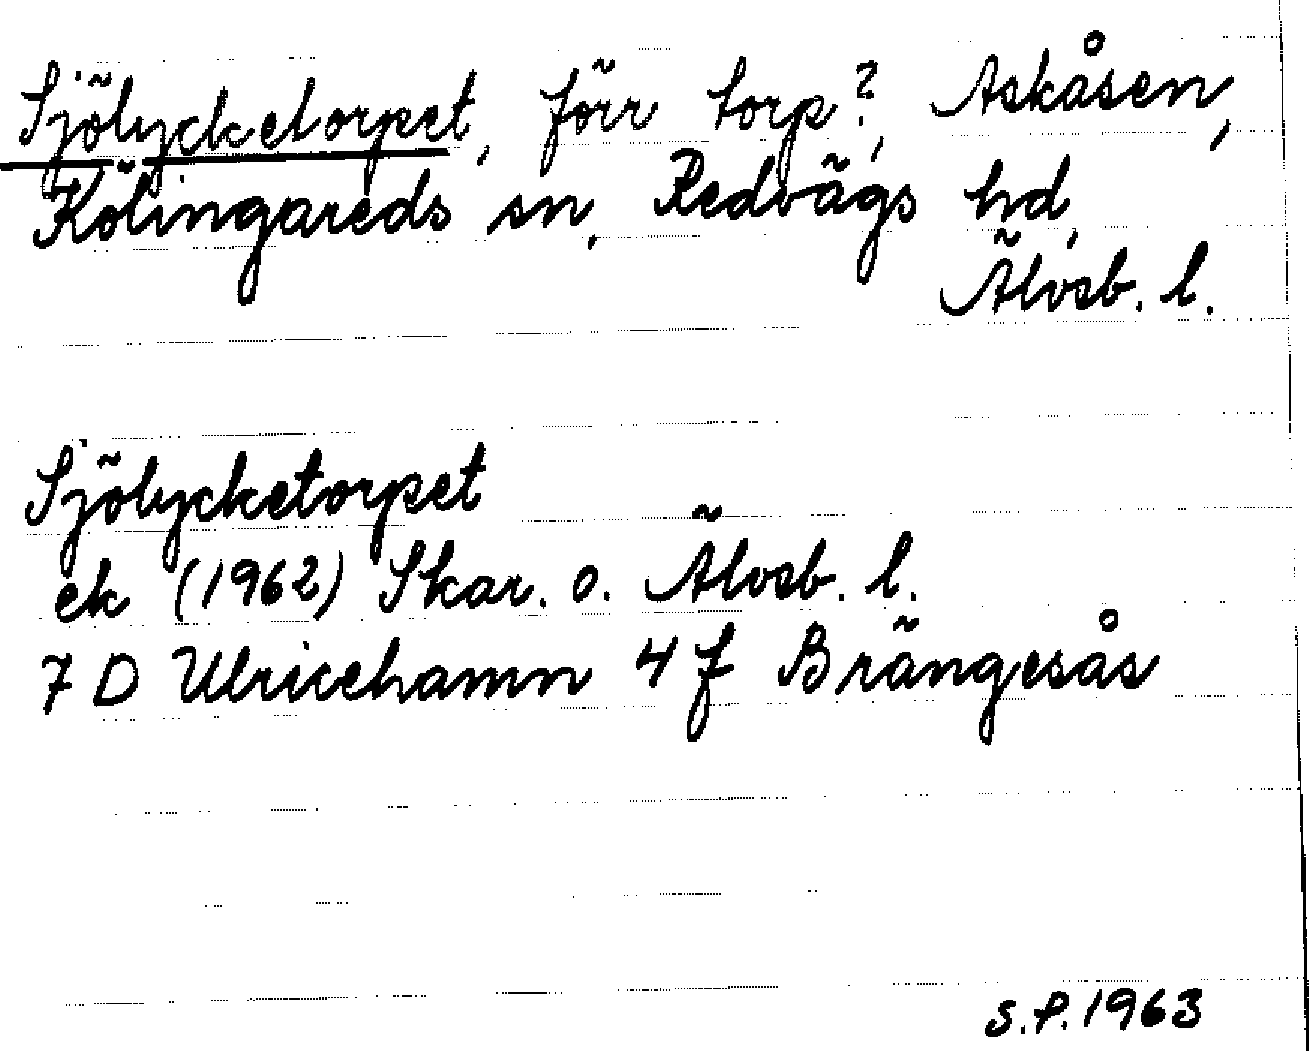 Sjölycketorpet, förr torp?, Askåsen,
Kölingareds sn, Redvägs hd,
Älvsb. l.
Sjölycketorpet
ek (1962) Skar. o. Älvsb. l.
7 D Ulricehamn 4 f Brängesås
S.P. 1963